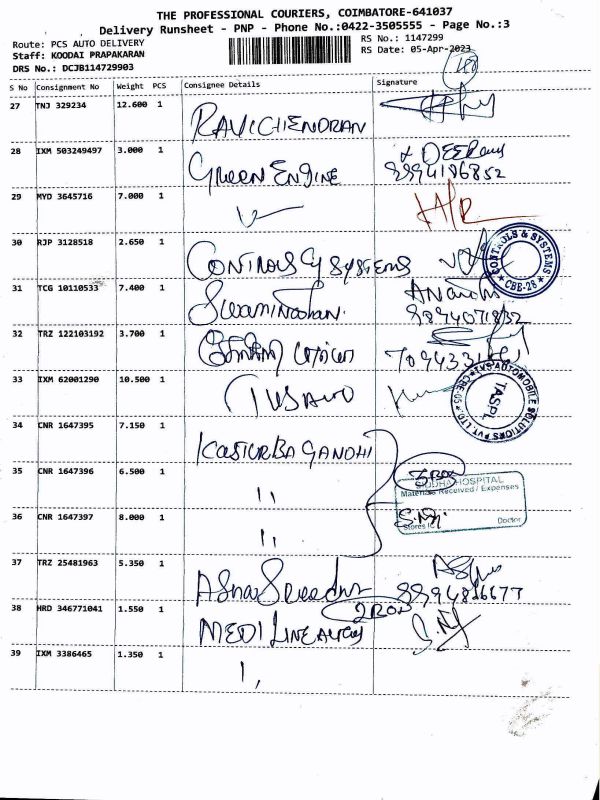 THE PROFESSIONAL COURIERS, COIMBATORE-641037
Delivery Runsheet - PNP - Phone No.:0422-3505555 - Page No.:3
Route: PCS AUTO DELIVERY
RS No.: 1147299
Staff: KOODAI PRAPAKARAN
RS Date: 05-Apr-2023
DRS No.: DCJB114729903
S No Consignment No Weight PCS Consignee Details Signature
27 TNJ 329234 12.600 1
RAVICHENDRAN
28 IXM 503249497 3.000 1
Green ENGINE 8994196852
29 MYD 3645716 7.000 1
30 RJP 3128518 2.650 1
CONTROLS & SYSTEMS
CONTROLS & SYSTEMS * CBE-28 *
31 TCG 10110533 7.400 1
Swaminathan
32 TRZ 122103192 3.700 1
33 IXM 62001290 10.500 1
TVS AUTO
TVS AUTOMOBILE SOLUTIONS PVT LTD. CBE-05
TASPL
34 CNR 1647395 7.150 1
KASTURBA GANDHI
35 CNR 1647396 6.500 1
" 3 BOX
SIDDHA HOSPITAL
Materials Received / Expenses
36 CNR 1647397 8.000 1
"
Stores IC Doctor
37 TRZ 25481963 5.350 1
8894866677
38 HRD 346771041 1.550 1
2 BOX
MEDI LINE
39 IXM 3386465 1.350 1
"